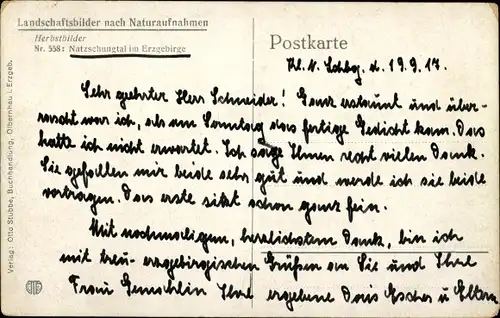 Landschaftsbilder nach Naturaufnahmen
Herbstbilder
Nr. 558: Natzschungtal im Erzgebirge
Postkarte
d. 19.9.17.
Sehr geehrter Herr Schneider! Ganz erstaunt und über-
rascht war ich, als am Sonntag das fertige Gedicht kam. Das
hatte ich nicht erwartet. Ich sage Ihnen recht vielen Dank.
Sie gefallen mir beide sehr gut und werde ich sie beide
vortragen. Das erste sitzt schon ganz fein.
Mit nochmaligen, herzlichstem Dank, bin ich
mit treu-erzgebirgischen Grüßen an Sie und Ihre
Frau Gemahlin Ihre ergebene Doris Escher u Eltern
Verlag: Otto Stubbe, Buchhandlung, Olbernhau i. Erzgeb.